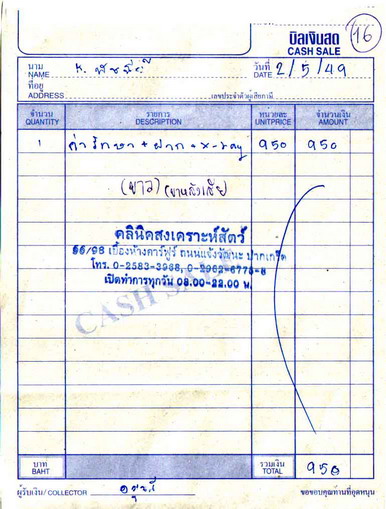 บิลเงินสด
CASH SALE
16
นาม
NAME
วันที่
DATE 2/5/49
ที่อยู่
ADDRESS
เลขประจำตัวผู้เสียภาษี
จำนวน รายการ หน่วยละ จำนวนเงิน
QUANTITY DESCRIPTION UNITPRICE AMOUNT
1 ค่ารักษา + ฝาก + x-ray 950 950
(ขาว)
คลินิคสงเคราะห์สัตว์
55/98 เยื้องห้างคาร์ฟูร์ ถนนแจ้งวัฒนะ ปากเกร็ด
โทร. 0-2583-3968, 0-2962-6775-8
เปิดทำการทุกวัน 08.00-22.00 น.
CASH SALE
บาท รวมเงิน
BAHT TOTAL 950
ผู้รับเงิน/COLLECTOR
ขอขอบคุณท่านที่อุดหนุน